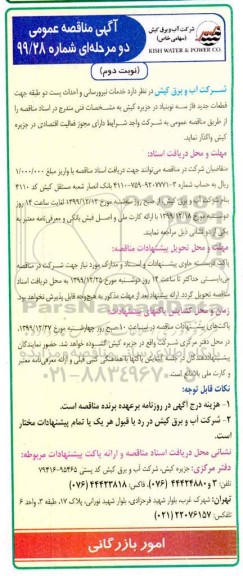 شرکت آب و برق کیش
(سهامی خاص)
KISH WATER & POWER CO.
آگهی مناقصه عمومی
دو مرحله‌ای شماره ۹۹/۲۸
(نوبت دوم)
شرکت آب و برق کیش در نظر دارد خدمات نیرورسانی و احداث پست دو طبقه جهت
قطعات جدید فاز سه نوبنیاد در جزیره کیش به مشخصات فنی مندرج در اسناد مناقصه را
از طریق مناقصه عمومی به شرکت واجد شرایط دارای مجوز فعالیت اقتصادی در جزیره
کیش واگذار نماید.
مهلت و محل دریافت اسناد:
متقاضیان شرکت در مناقصه می‌توانند جهت دریافت اسناد مناقصه با واریز مبلغ ۱/۰۰۰/۰۰۰
ریال به حساب شماره ۳-۹۲۰۷۷۷۱-۷۵۹-۴۱۱۰ بانک انصار شعبه مستقل کیش کد ۴۱۱۰
بنام شرکت آب و برق کیش، از صبح روز سه‌شنبه مورخ ۱۳۹۹/۱۲/۱۲ لغایت ساعت ۱۴ روز
دوشنبه مورخ ۱۳۹۹/۱۲/۱۸ با ارائه کارت ملی و اصل فیش بانکی و معرفی‌نامه معتبر به
یکی از دو نشانی ذیل مراجعه نمایند.
مهلت و محل تحویل پیشنهادات مناقصه:
پاکت دربسته حاوی پیشنهادات و اسناد و مدارک مورد نیاز جهت شرکت در مناقصه
می‌بایستی حداکثر تا ساعت ۱۴ روز دوشنبه مورخ ۱۳۹۹/۱۲/۲۵ به محل دریافت اسناد
مناقصه تحویل گردد. ارائه پیشنهاد بعد از مهلت مذکور به هیچ‌وجه قابل پذیرش نخواهد بود.
زمان و محل گشایش پاکتهای پیشنهادات:
پاکت‌های پیشنهادات مناقصه در ساعت ۱۰ صبح روز چهارشنبه مورخ ۱۳۹۹/۱۲/۲۷
در محل دفتر مرکزی شرکت واقع در جزیره کیش گشوده خواهد شد. حضور نمایندگان
و کارت ملی بلامانع است.
۰۲۱-۸۸۳۴۹۶۷۰
نکات قابل توجه:
۱- هزینه درج آگهی در روزنامه برعهده برنده مناقصه است.
۲- شرکت آب و برق کیش در رد یا قبول هر یک یا تمام پیشنهادات مختار
است.
نشانی محل دریافت اسناد مناقصه و ارائه پاکت پیشنهادات مربوطه:
دفتر مرکزی: جزیره کیش، شرکت آب و برق کیش کد پستی ۹۵۴۶۵-۷۹۴۱۶
تلفن: ۳ و ۴۴۴۲۴۸۸۰ (۰۷۶)، فاکس: ۴۴۴۲۳۸۱۸ (۰۷۶)
تهران: شهرک غرب، بلوار شهید فرحزادی، بلوار شهید نورانی، پلاک ۱۷، طبقه ۳، واحد ۶
تلفکس: ۲۲۰۷۶۱۵۷ (۰۲۱)
امور بازرگانی